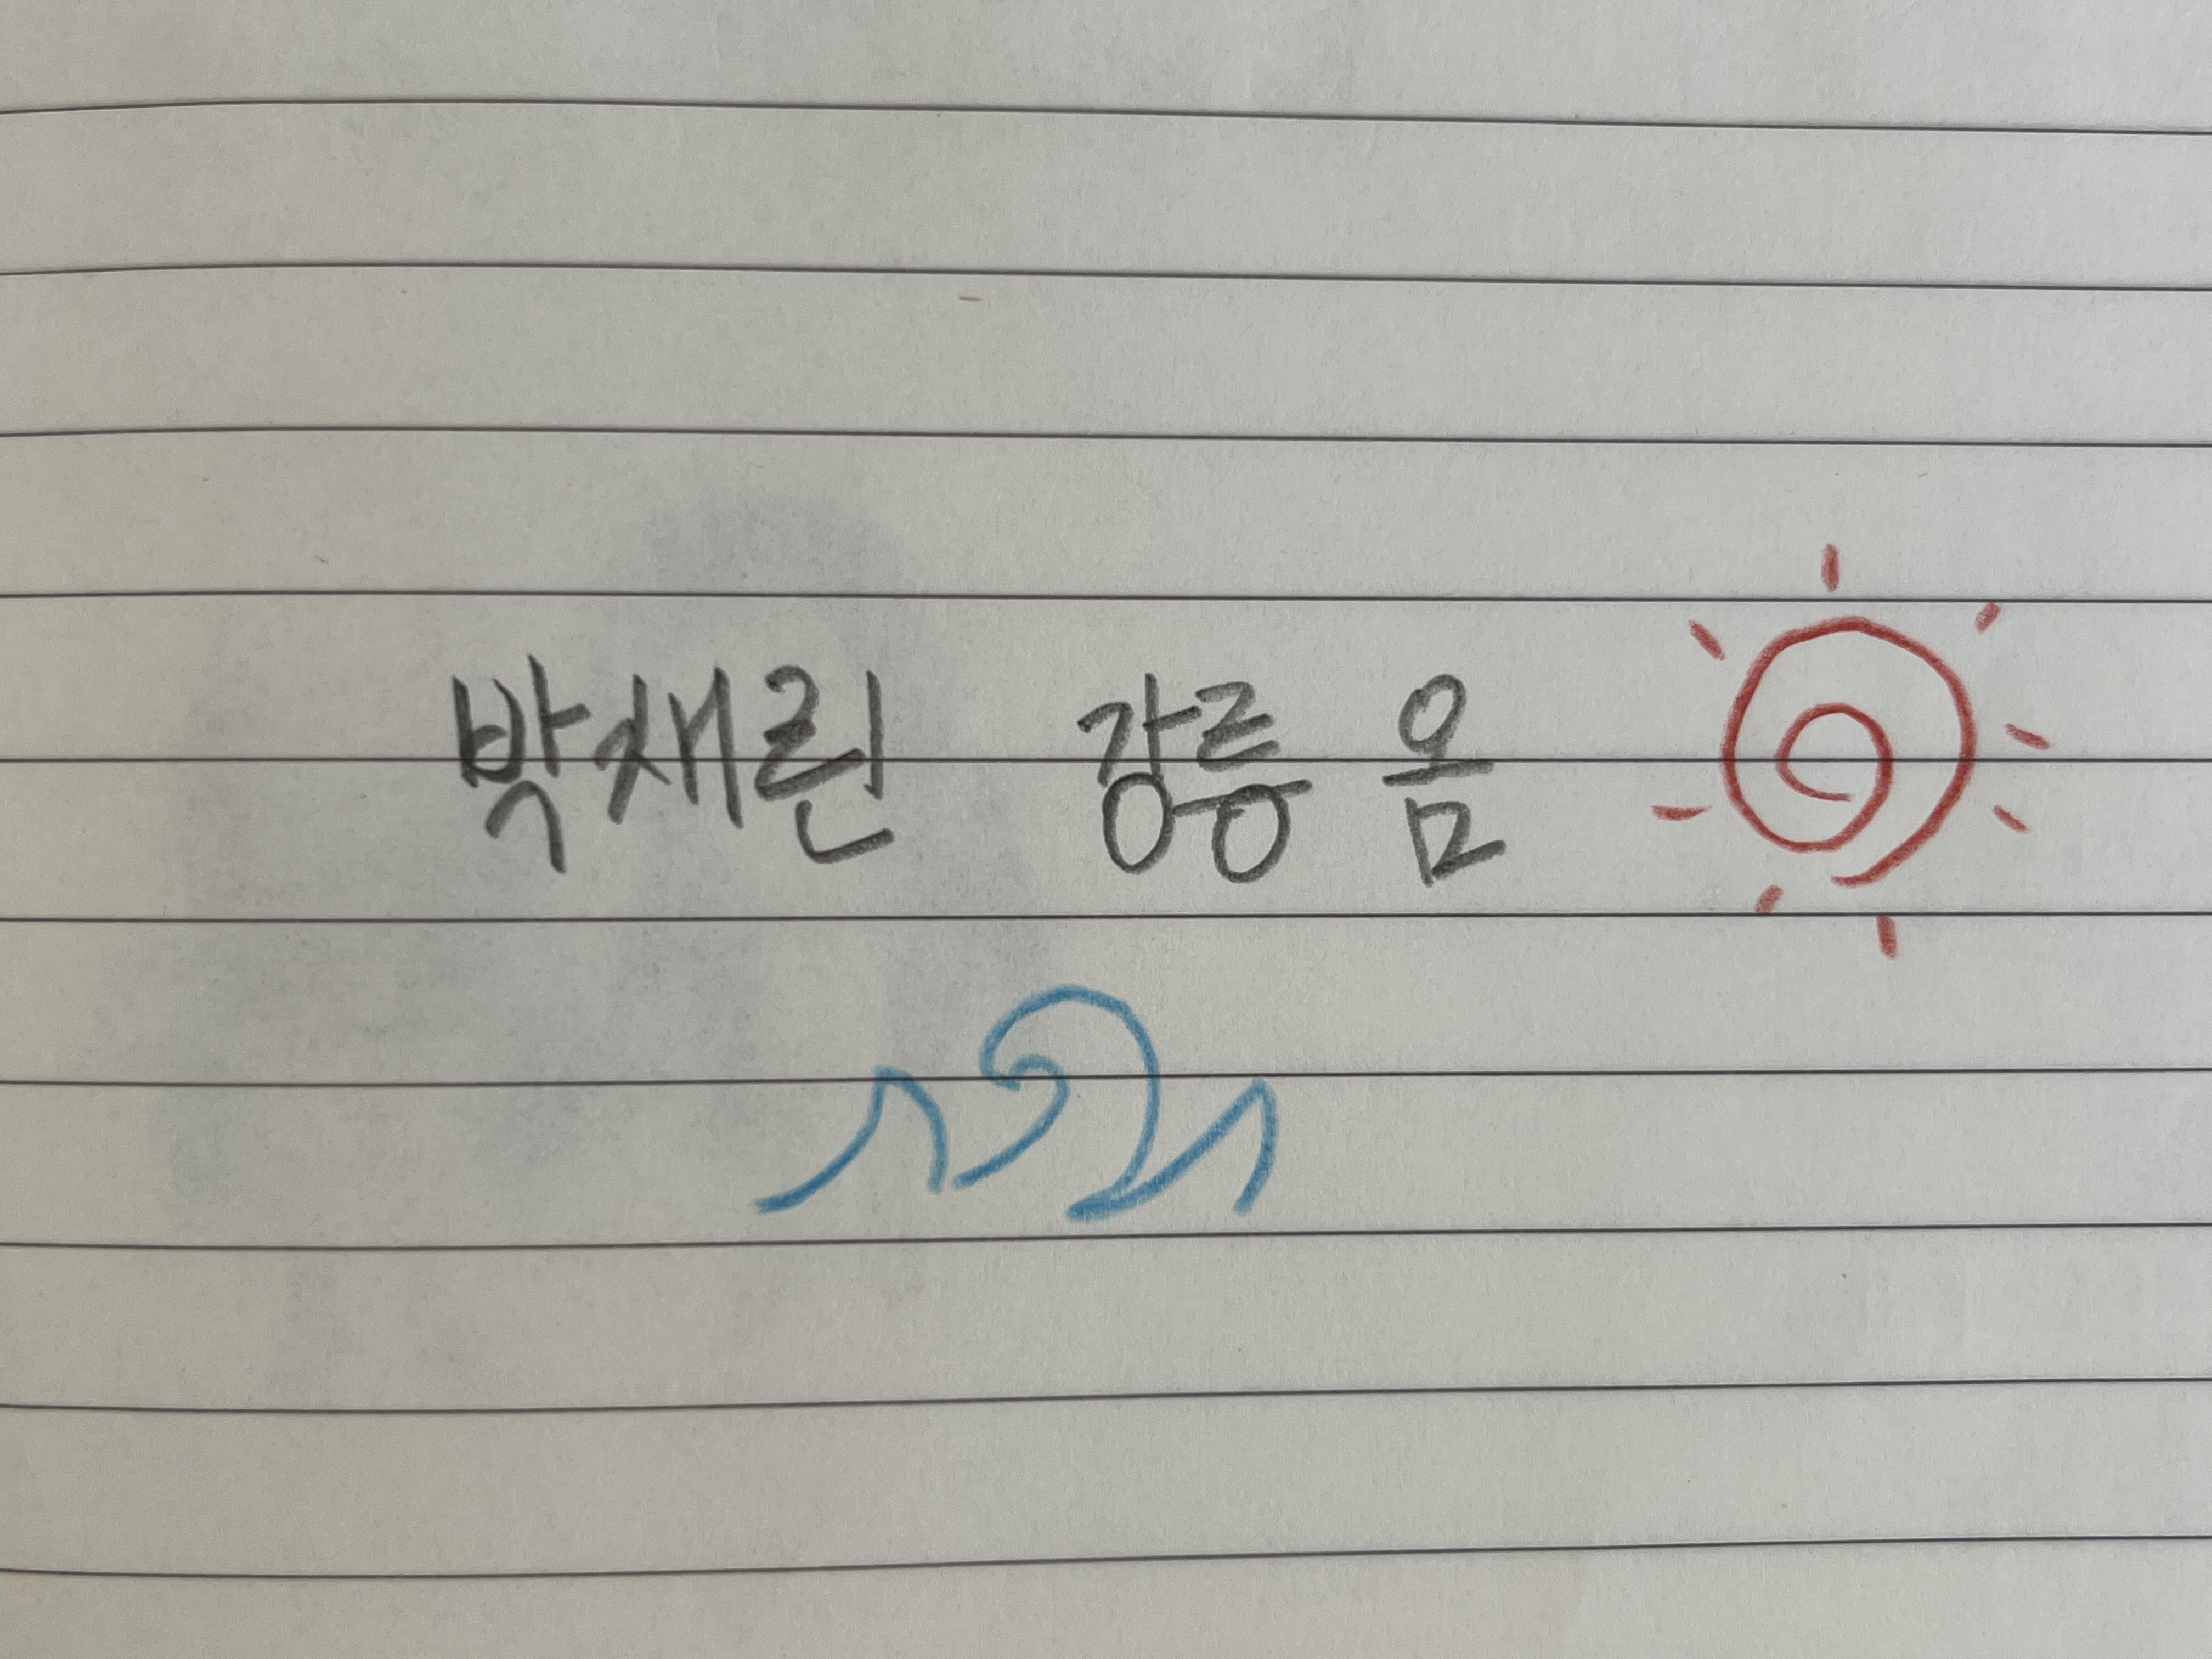 박재린 강릉 옴